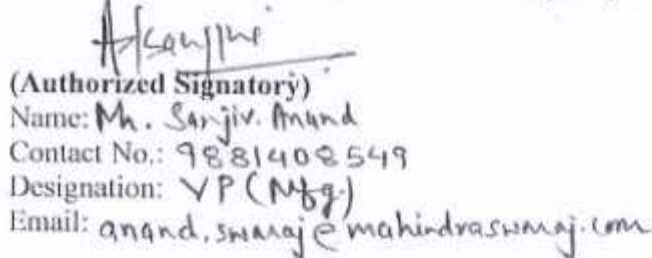 (Authorized Signatory)
Name: Mr. Sanjiv. Anand
Contact No.: 9881408549
Designation: VP (Mfg.)
Email: anand.swaraj@mahindraswaraj.com